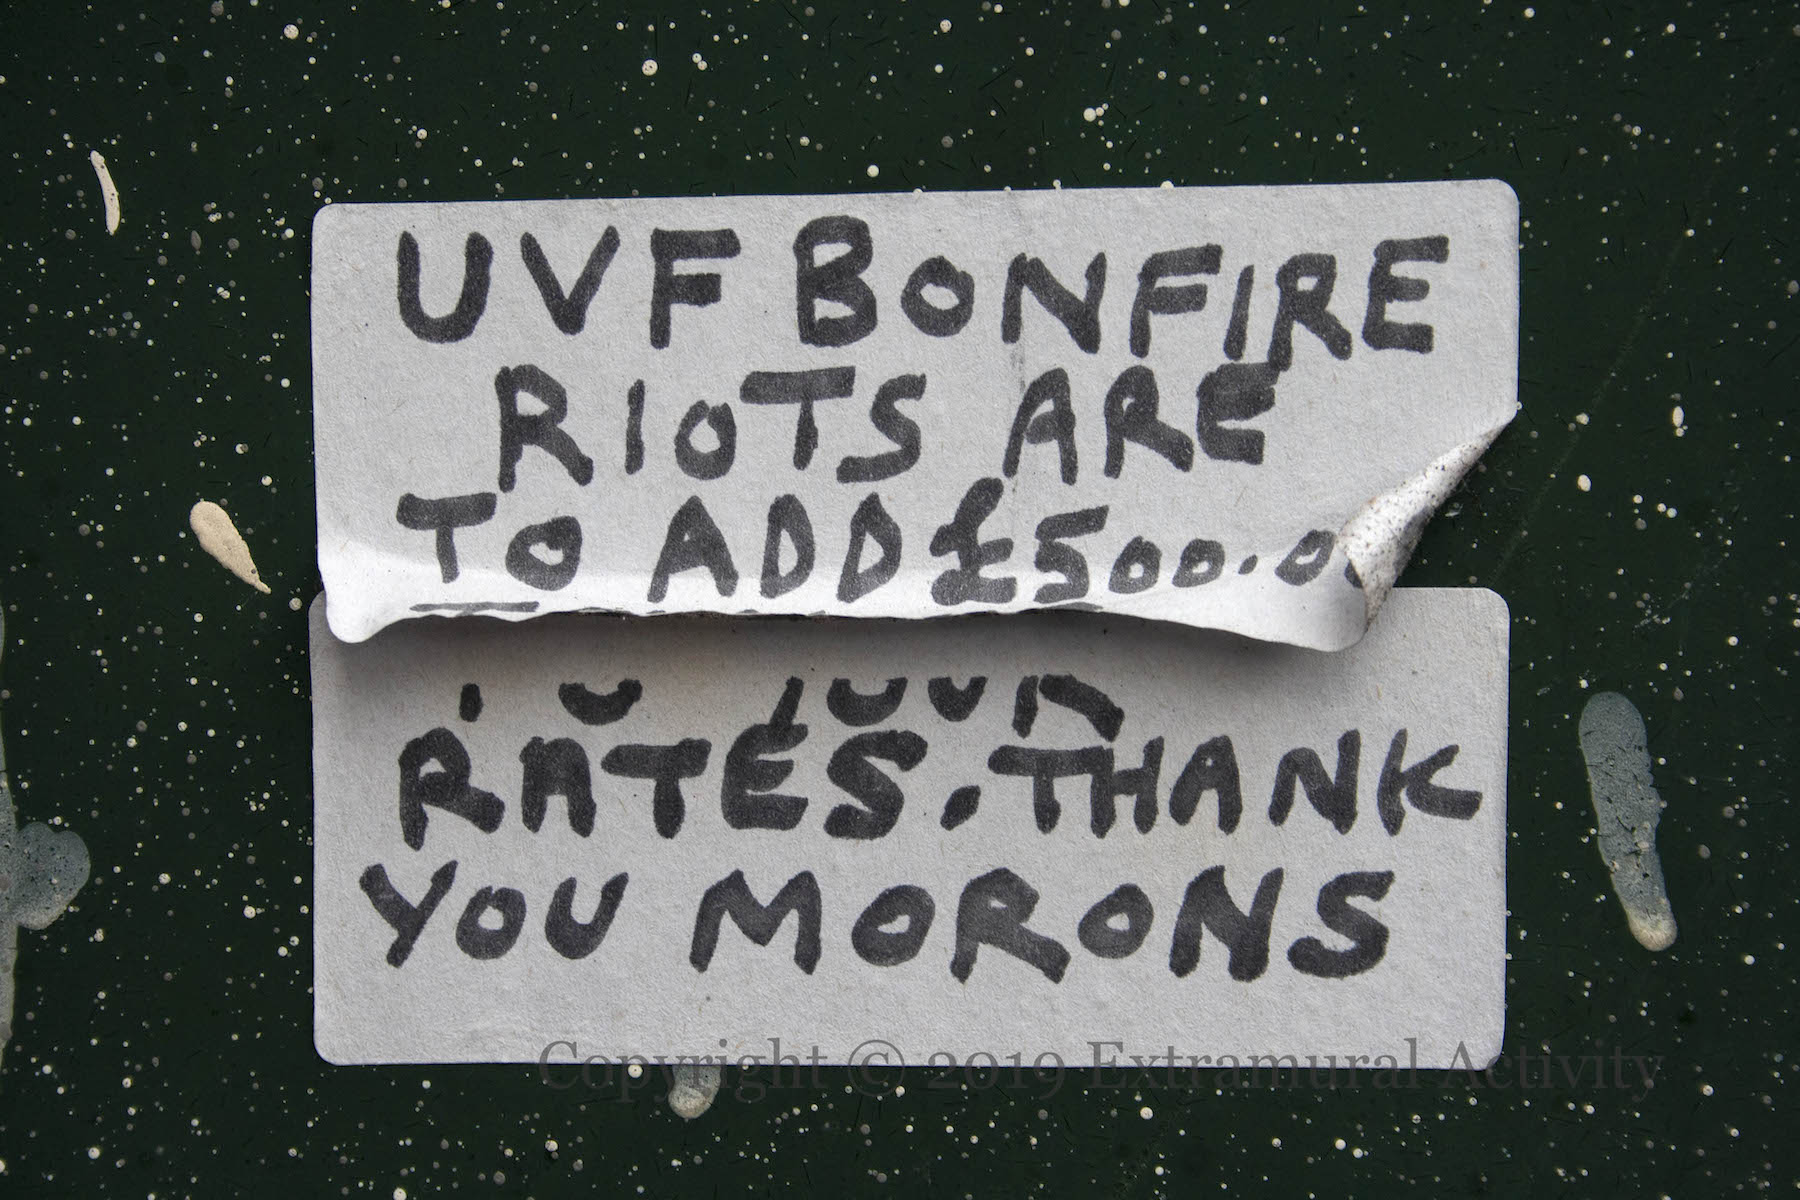 UVF BONFIRE
RIOTS ARE
TO ADD £500.0
TO YOUR
RATES. THANK
YOU MORONS
Copyright © 2019 Extramural Activity